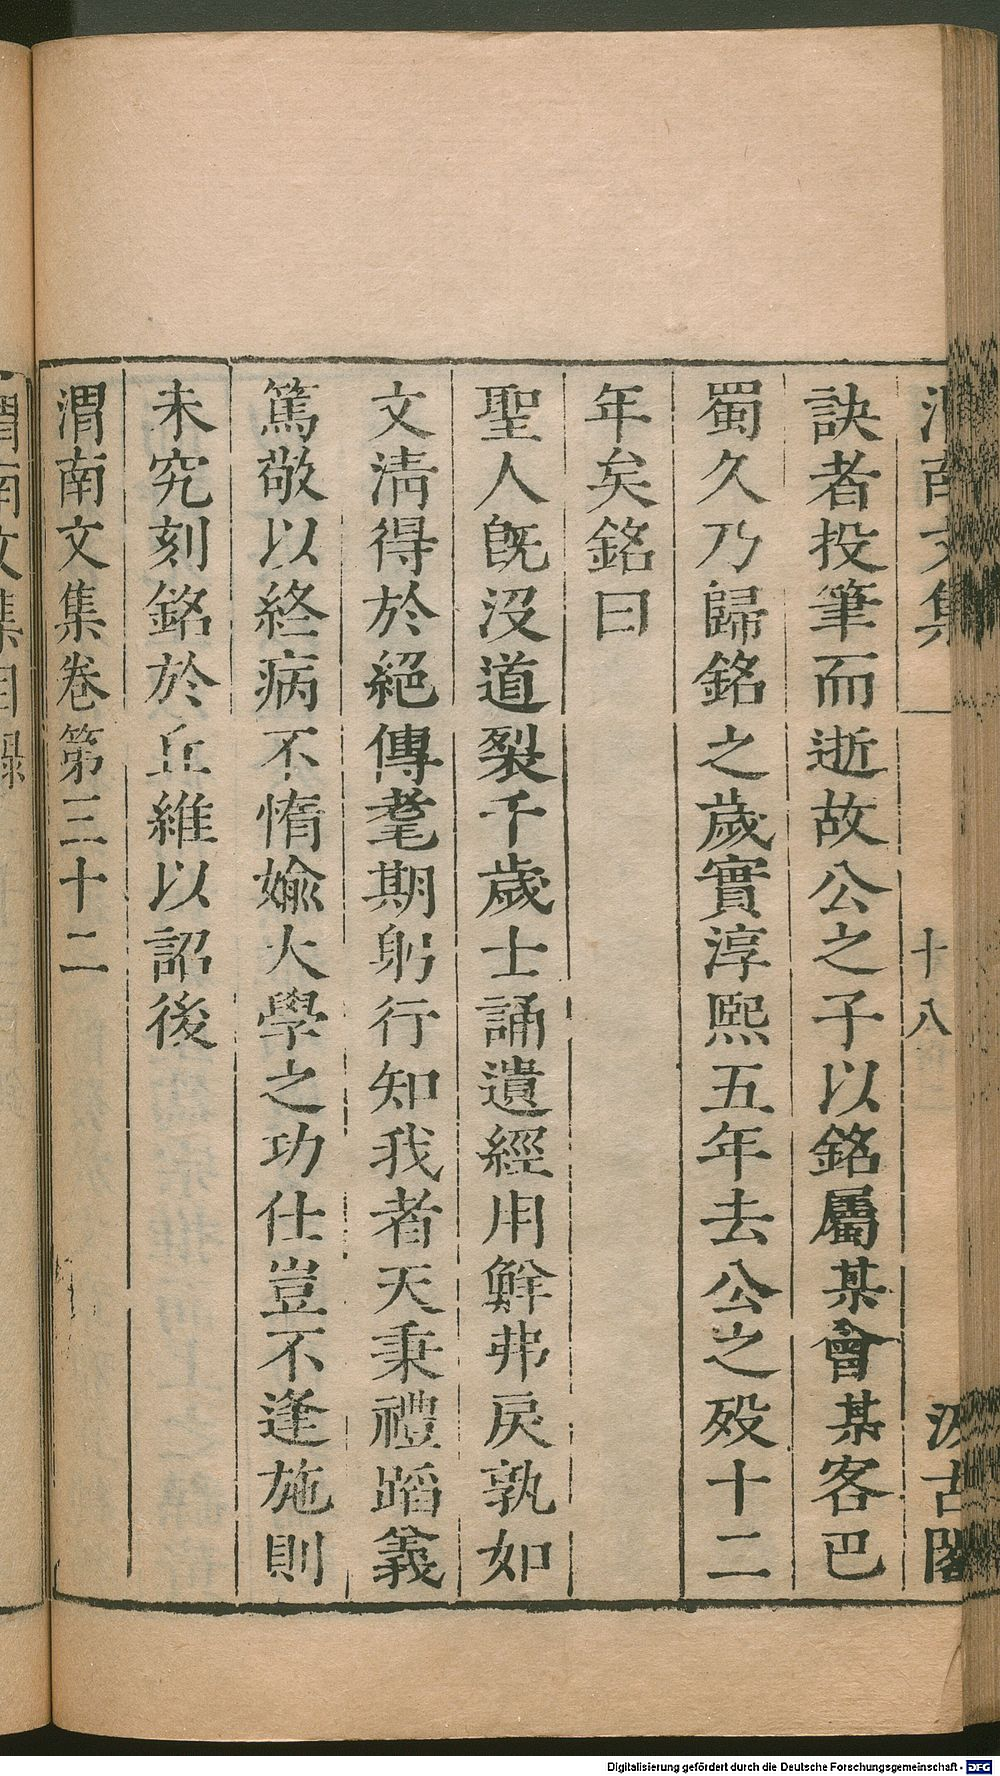 渭南文集 十八 汲古閣
訣者投筆而逝故公之子以銘屬某會某客巴
蜀久乃歸銘之歲實淳熙五年去公之歿十二
年矣銘曰
聖人旣沒道裂千歲士誦遺經用鮮弗戾孰如
文淸得於絕傳耄期躬行知我者天秉禮蹈義
篤敬以終病不惰媮大學之功仕豈不逢施則
未究刻銘於丘維以詔後
渭南文集卷第三十二
渭南文集目錄
Digitalisierung gefördert durch die Deutsche Forschungsgemeinschaft - DFG